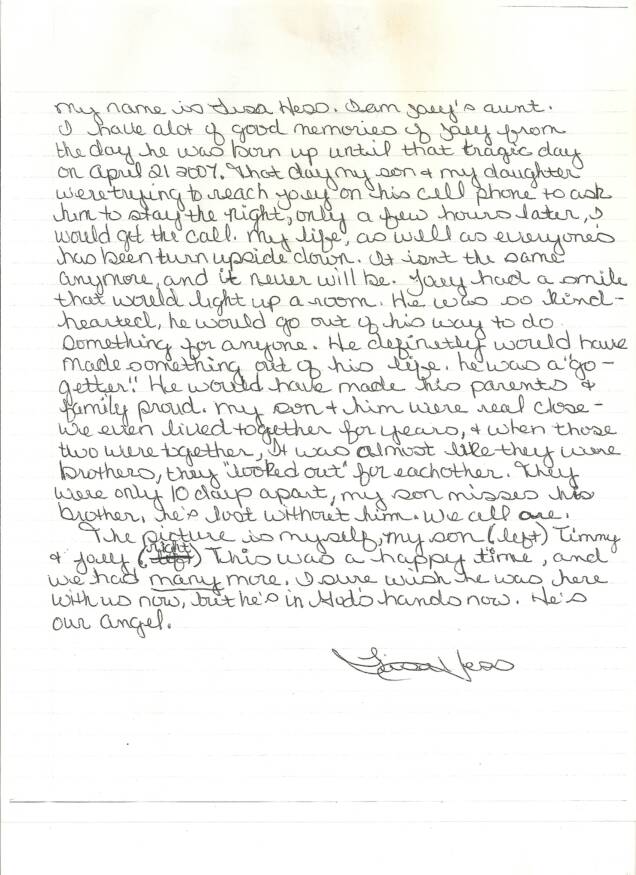 My name is Lisa Hess. I am Joey's aunt.
I have alot of good memories of Joey from
the day he was born up until that tragic day
on April 21 2007. That day my son & my daughter
were trying to reach Joey on his cell phone to ask
him to stay the night, only a few hours later, I
would get the call. My life, as well as everyone's
has been turn upside down. It isnt the same
anymore, and it never will be. Joey had a smile
that would light up a room. He was so kind-
hearted, he would go out of his way to do
something for anyone. He definetly would have
made something out of his life. he was a "go-
getter". He would have made his parents &
family proud. My son & him were real close-
we even lived together for years, & when those
two were together, It was almost like they were
brothers, they "looked out" for eachother. They
were only 10 days apart, my son misses his
brother, he's lost without him. We all are.
The picture is myself, my son (left) Timmy
& Joey (right) This was a happy time, and
we had many more. I sure wish he was here
with us now, but he's in God's hands now. He's
our angel.
Lisa Hess